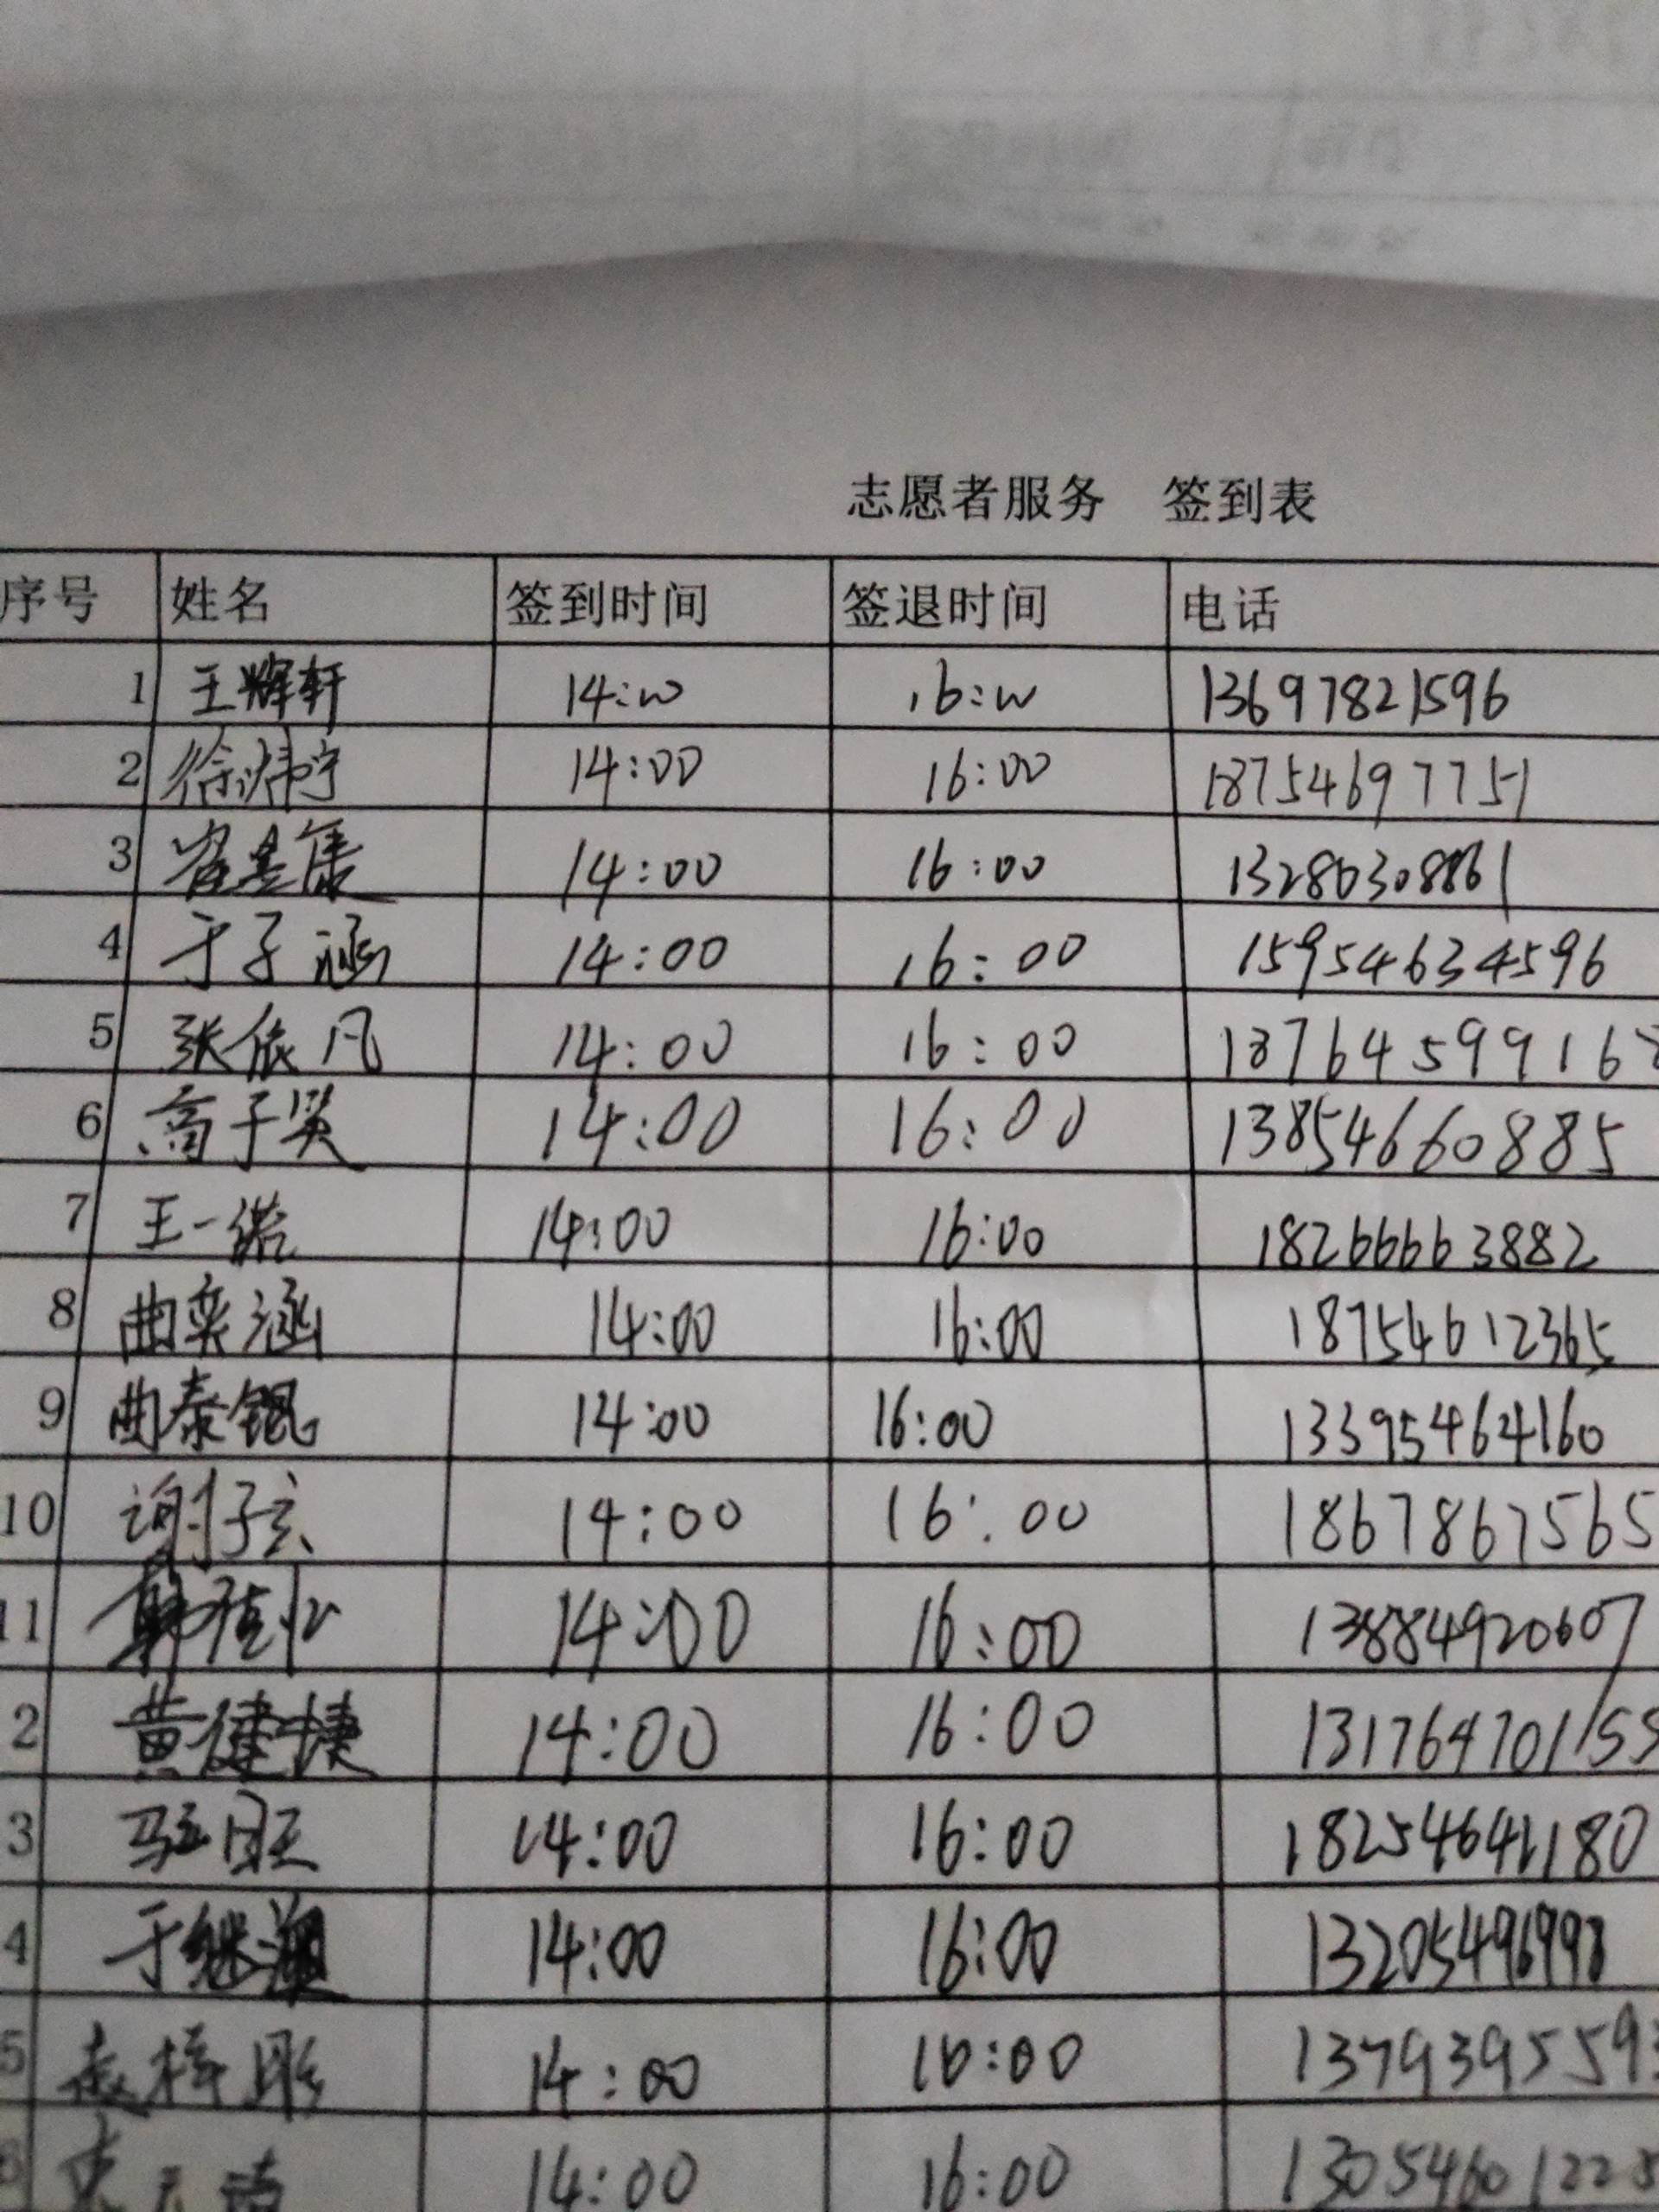 志愿者服务 签到表
序号 姓名 签到时间 签退时间 电话
1 王辉轩 14:00 16:00 13697821596
2 徐炜宁 14:00 16:00 18754697751
3 14:00 16:00
4 于子涵 14:00 16:00 15954634596
5 张依凡 14:00 16:00 1876459916
6 高子昊 14:00 16:00 13854660885
7 王一诺 14:00 16:00 18266663882
8 曲奕涵 14:00 16:00 18754612365
9 曲泰锟 14:00 16:00 13395464160
10 谢子玄 14:00 16:00 1867867565
11 14:00 16:00 13884920607
2 黄健捷 14:00 16:00
3 14:00 16:00
4 于继 14:00 16:00
5 梓彤 14:00 16:00 1379395593
14:00 16:00